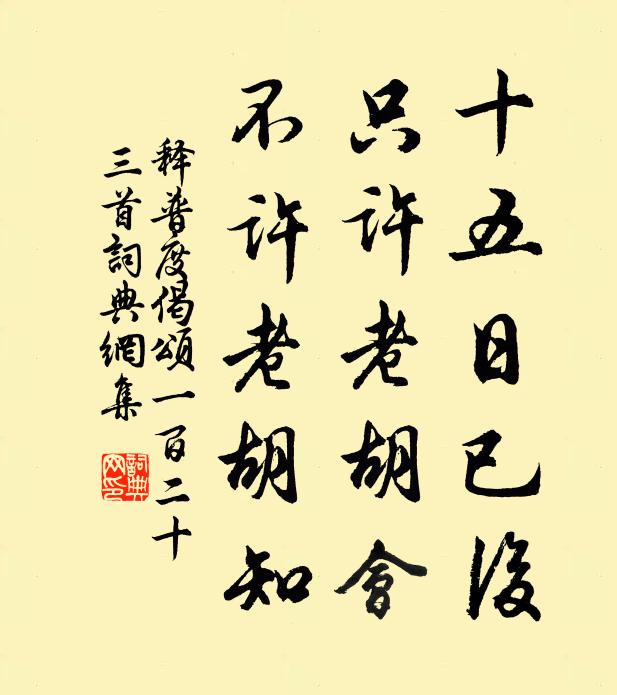 十五日已後
只許老胡會
不許老胡知
释普度偈頌一百二十
三首詞典網集
詞典
网印